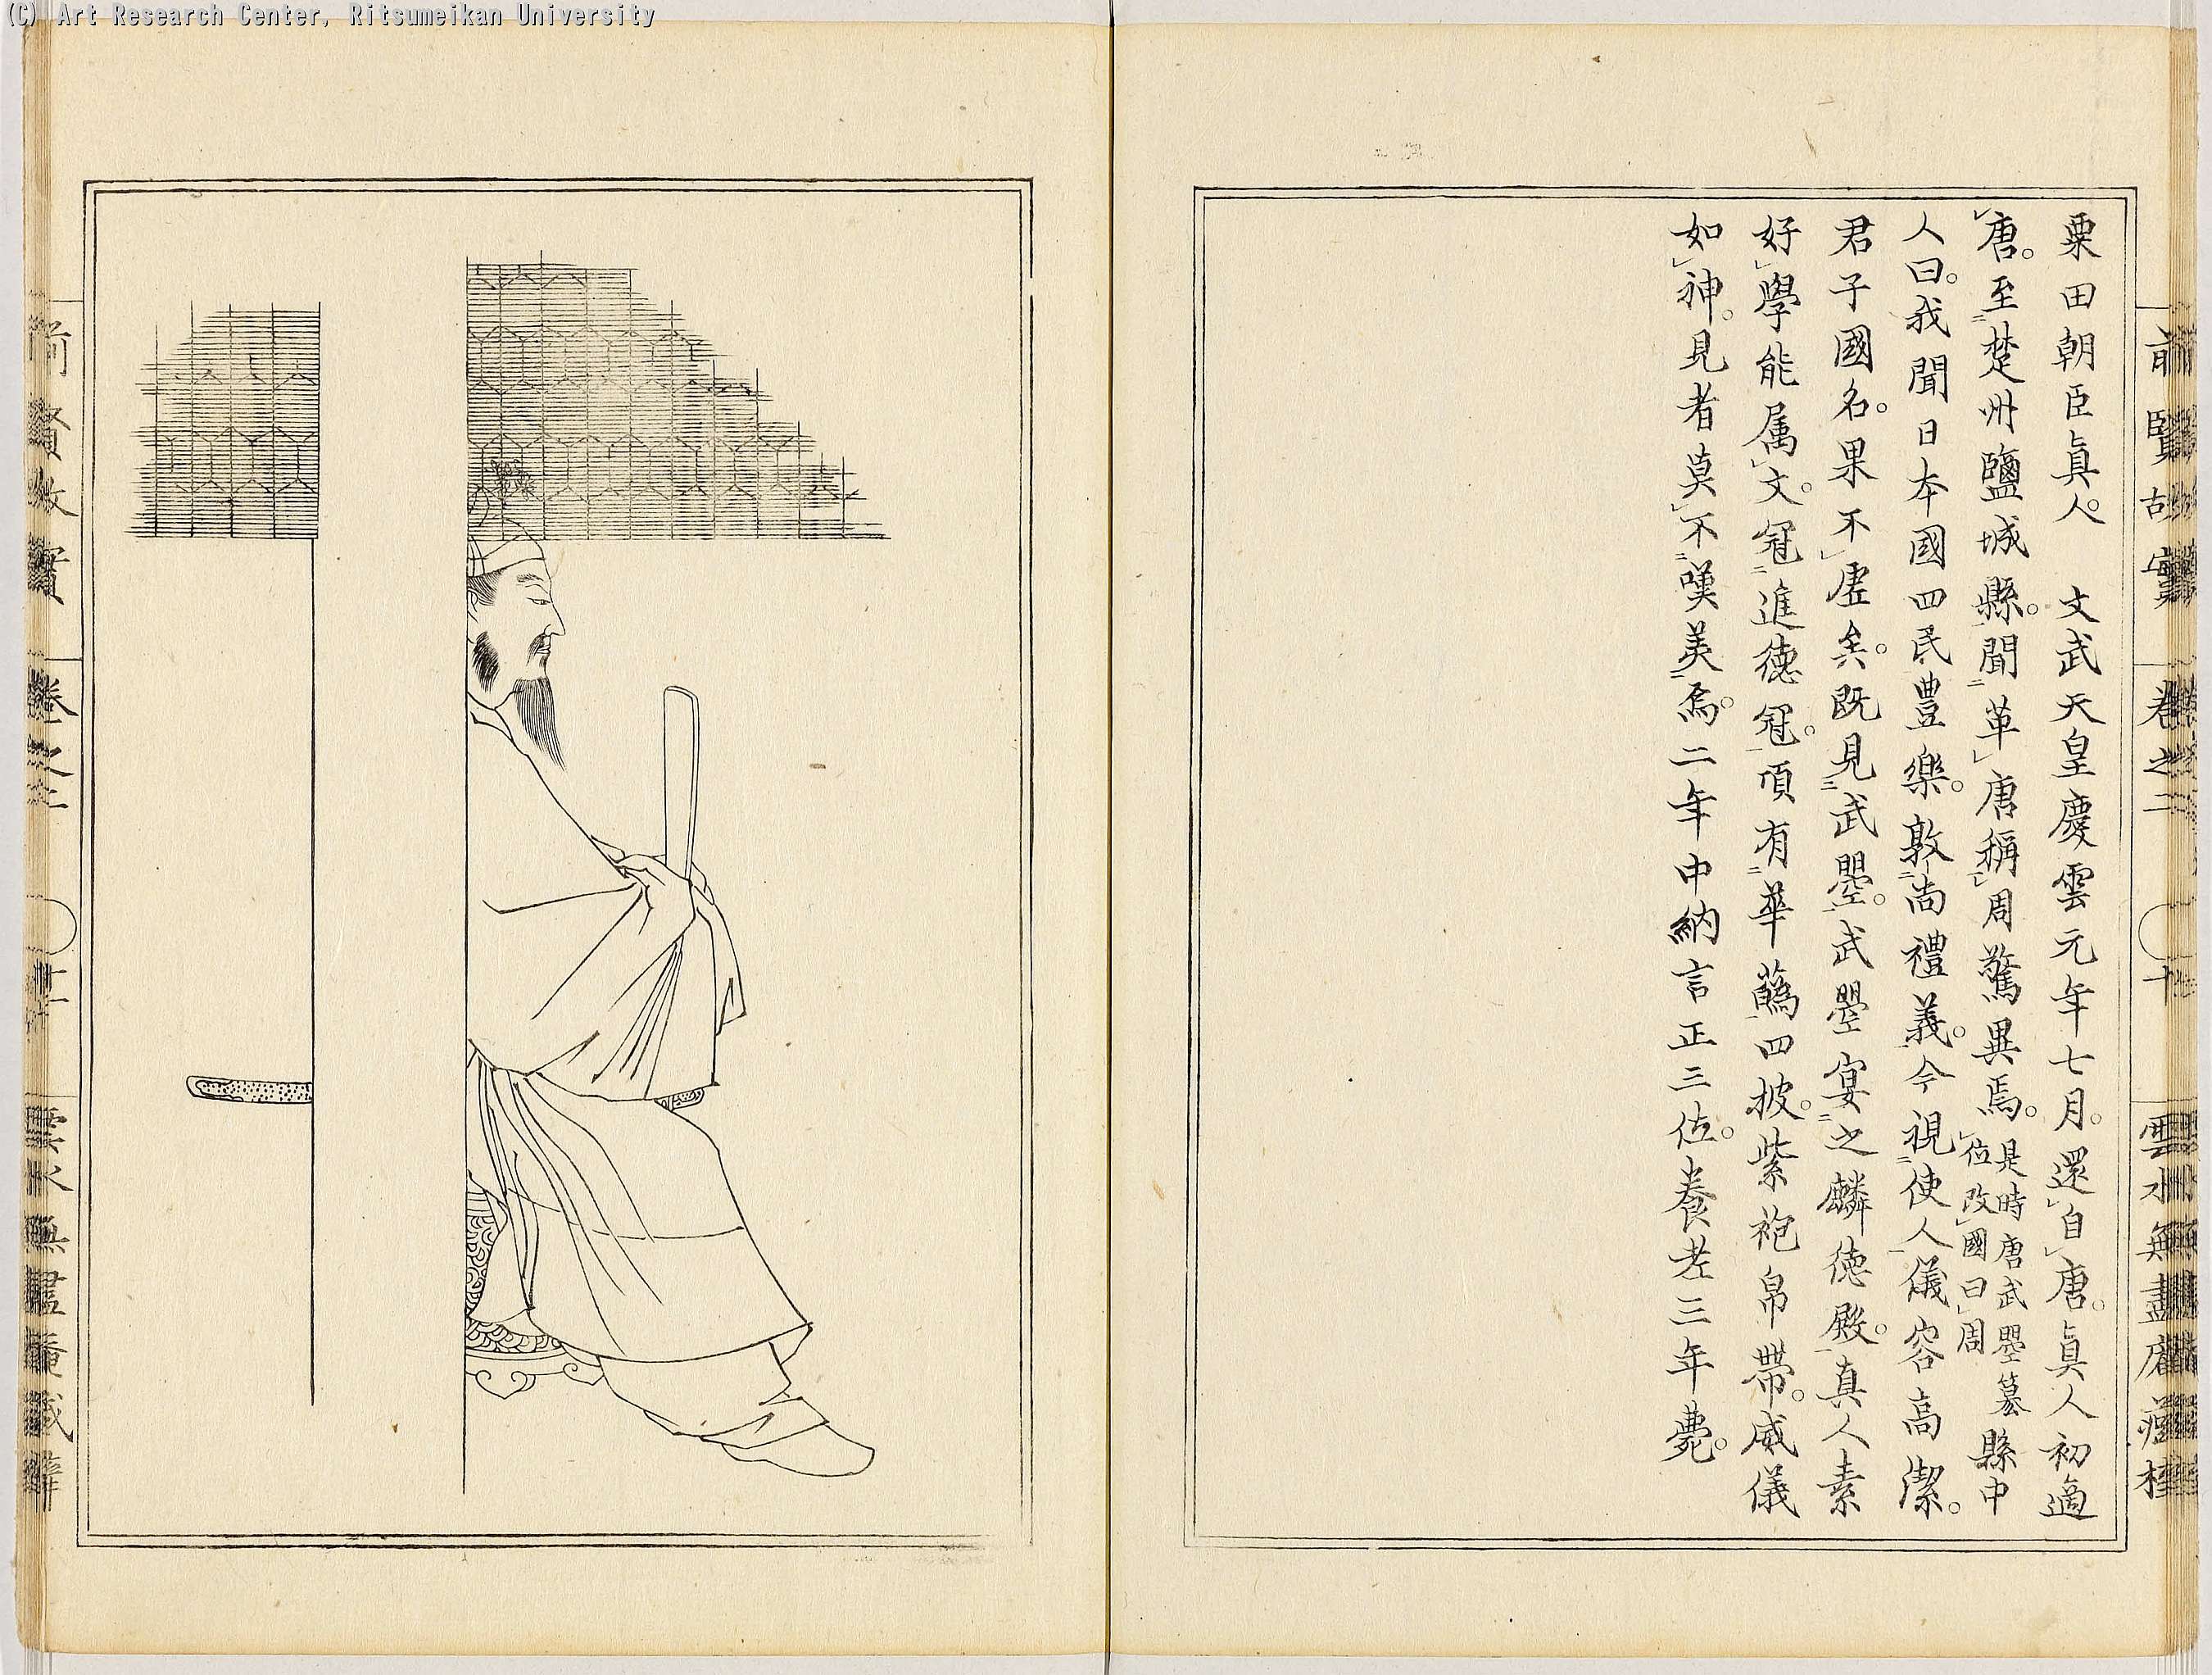 (C) Art Research Center, Ritsumeikan University
前賢故實 卷之二 十 雲水無盡庵藏梓
粟田朝臣眞人。 文武天皇慶雲元年七月。還自唐。眞人初適
唐。至楚州鹽城縣。聞革唐稱周驚異焉。是時唐武曌簒位改國曰周縣中
人曰。我聞日本國四民豊樂。敦尚禮義。今視使人儀容高潔。
君子國名。果不虛矣。既見武曌。武曌宴之麟德殿。眞人素
好學能属文。冠進德冠。頂有華蘤四披。紫袍帛帶。威儀
如神。見者莫不嘆美焉。二年中納言正三位。養老三年薨。
前賢故實 卷之二 雲水無盡庵藏梓